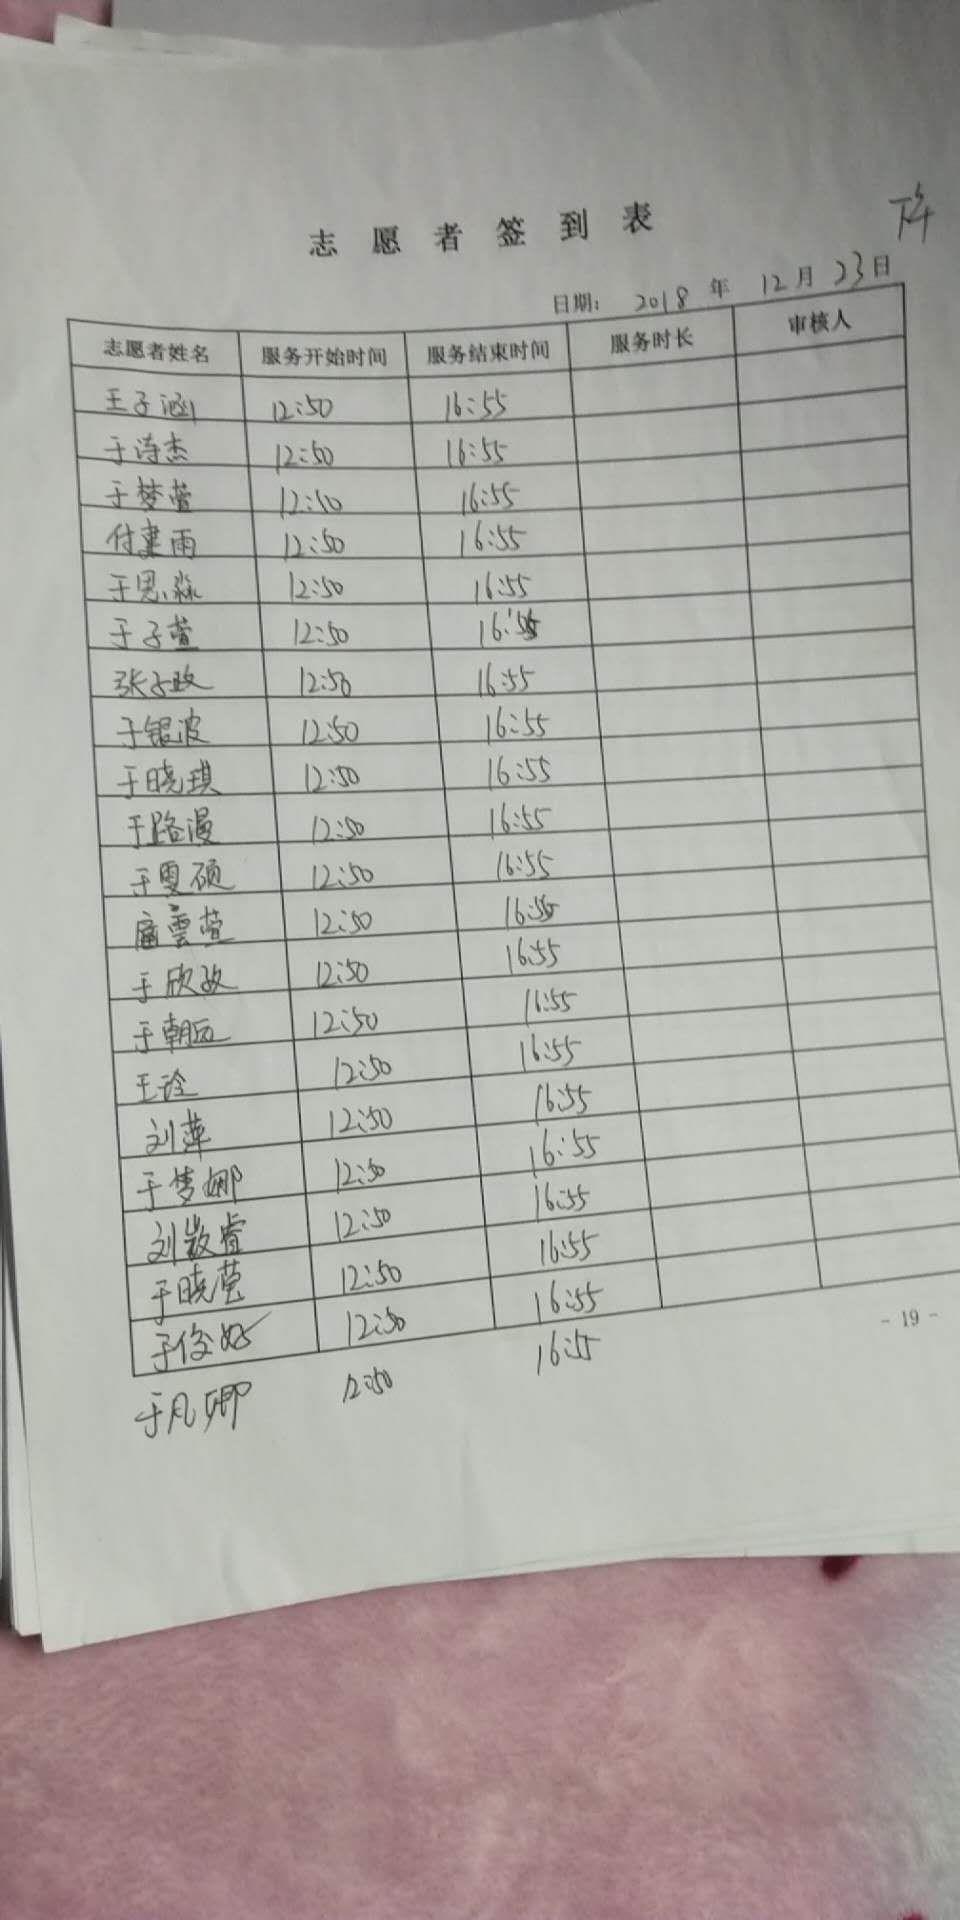 下午
志愿者签到表
日期： 2018 年 12月 23日
志愿者姓名 服务开始时间 服务结束时间 服务时长 审核人
王子涵 12:50 16:55
于诗杰 12:50 16:55
于梦萱 12:50 16:55
付建雨 12:50 16:55
于思淼 12:50 16:55
于子萱 12:50 16:55
张子政 12:50 16:55
于银波 12:50 16:55
于晓琪 12:50 16:55
于路漫 12:50 16:55
于雯硕 12:50 16:55
扈雲萱 12:50 16:55
于欣孜 12:50 16:55
于朝 12:50 16:55
王诠 12:50 16:55
刘萍 12:50 16:55
于梦娜 12:50 16:55
刘睿 12:50 16:55
于晓莹 12:50 16:55
于俊 12:50 16:55
于凡卿 12:50 16:55
- 19 -